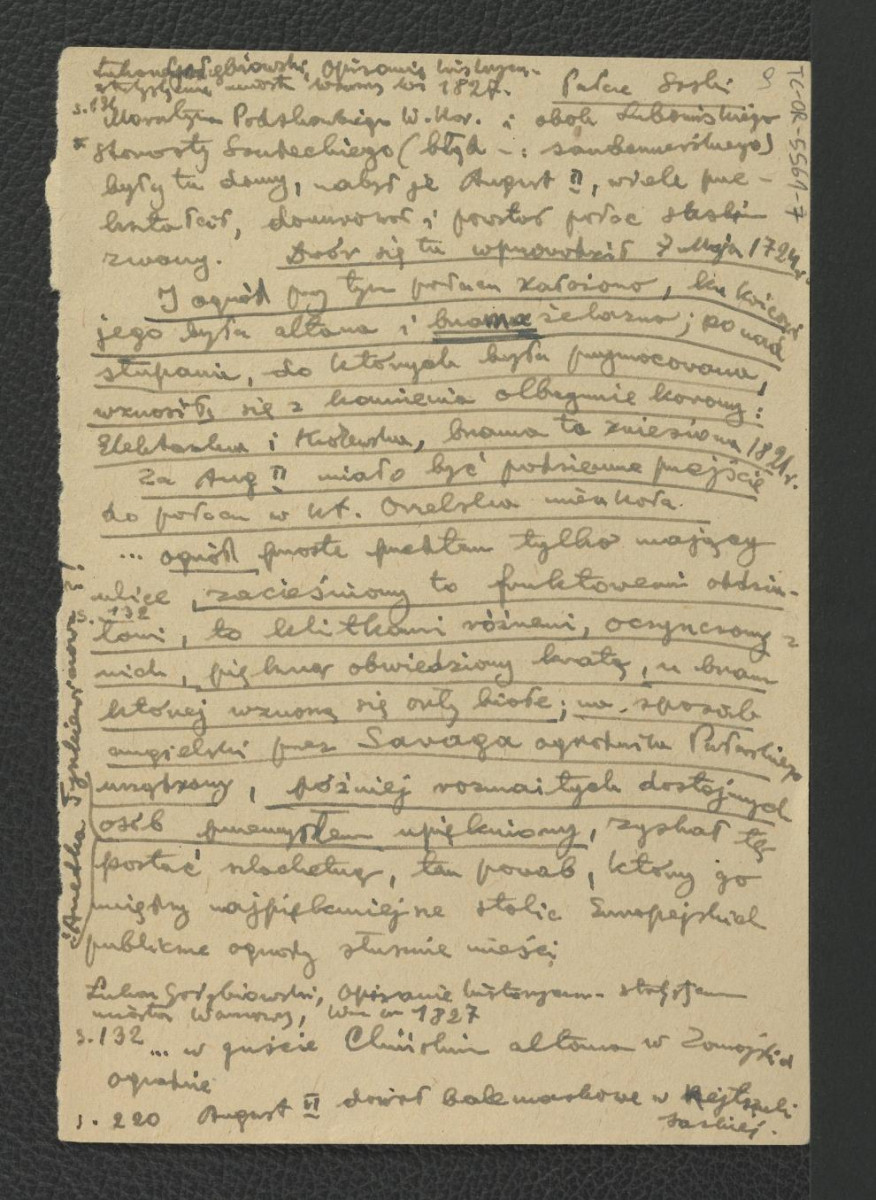 Łukasz Gołębiowski, Opisanie historycz.-
statystyczne miasta Warszawy 1827. Pałac Saski
9
TC-OR-5561-7
s. 131
Morsztyna Podskarbiego W. Kor. i obok Lubomirskiego
* Starosty Sandeckiego (błąd -: sandomierskiego)
były tu domy, nabył je August II, wiele prze-
kształcił, domurował i powstał pałac saskim
zwany. Dwór się tu wprowadził 7 Maja 1724 r.
I ogród przy tym pałacu założono, ku końcowi
jego była altana i brama żelazna; ponad
słupami, do których była przymocowana,
wznosiły się z kamienia olbrzymie korony:
Elektorska i Królewska, brama ta zniesiona 1821 r.
Za Aug II miało być podziemne przejście
do pałacu w kt. Orzelska mieszkała.
... ogród proste przedtem tylko mający
ulice, zacieśniony to fruktowemi oddzia-
s. 132
łami, to klitkami różnemi, oczyszczony z
nich, piękną obwiedziony kratą, u bram
której wznoszą się orły białe; na sposób
angielski przez Savaga ogrodnika Puławskiego
urządzony, później rozmaitych dostojnych
osób przemysłem upiękniony, zyskał tę
postać szlachetną, ten powab, który go
między najpiękniejsze stolic Europejskich
publiczne ogrody słusznie mieści
Anetka Tyszkiewiczowa?!
Łukasz Gołębiowski, Opisanie historyczn.- statystyczn
miasta Warszawy, 1827
s. 132 ... w guście Chińskim altana w Zamojskich
ogrodzie
s. 220 August II dawał bale maskowe w Rejtszuli
saskiej.